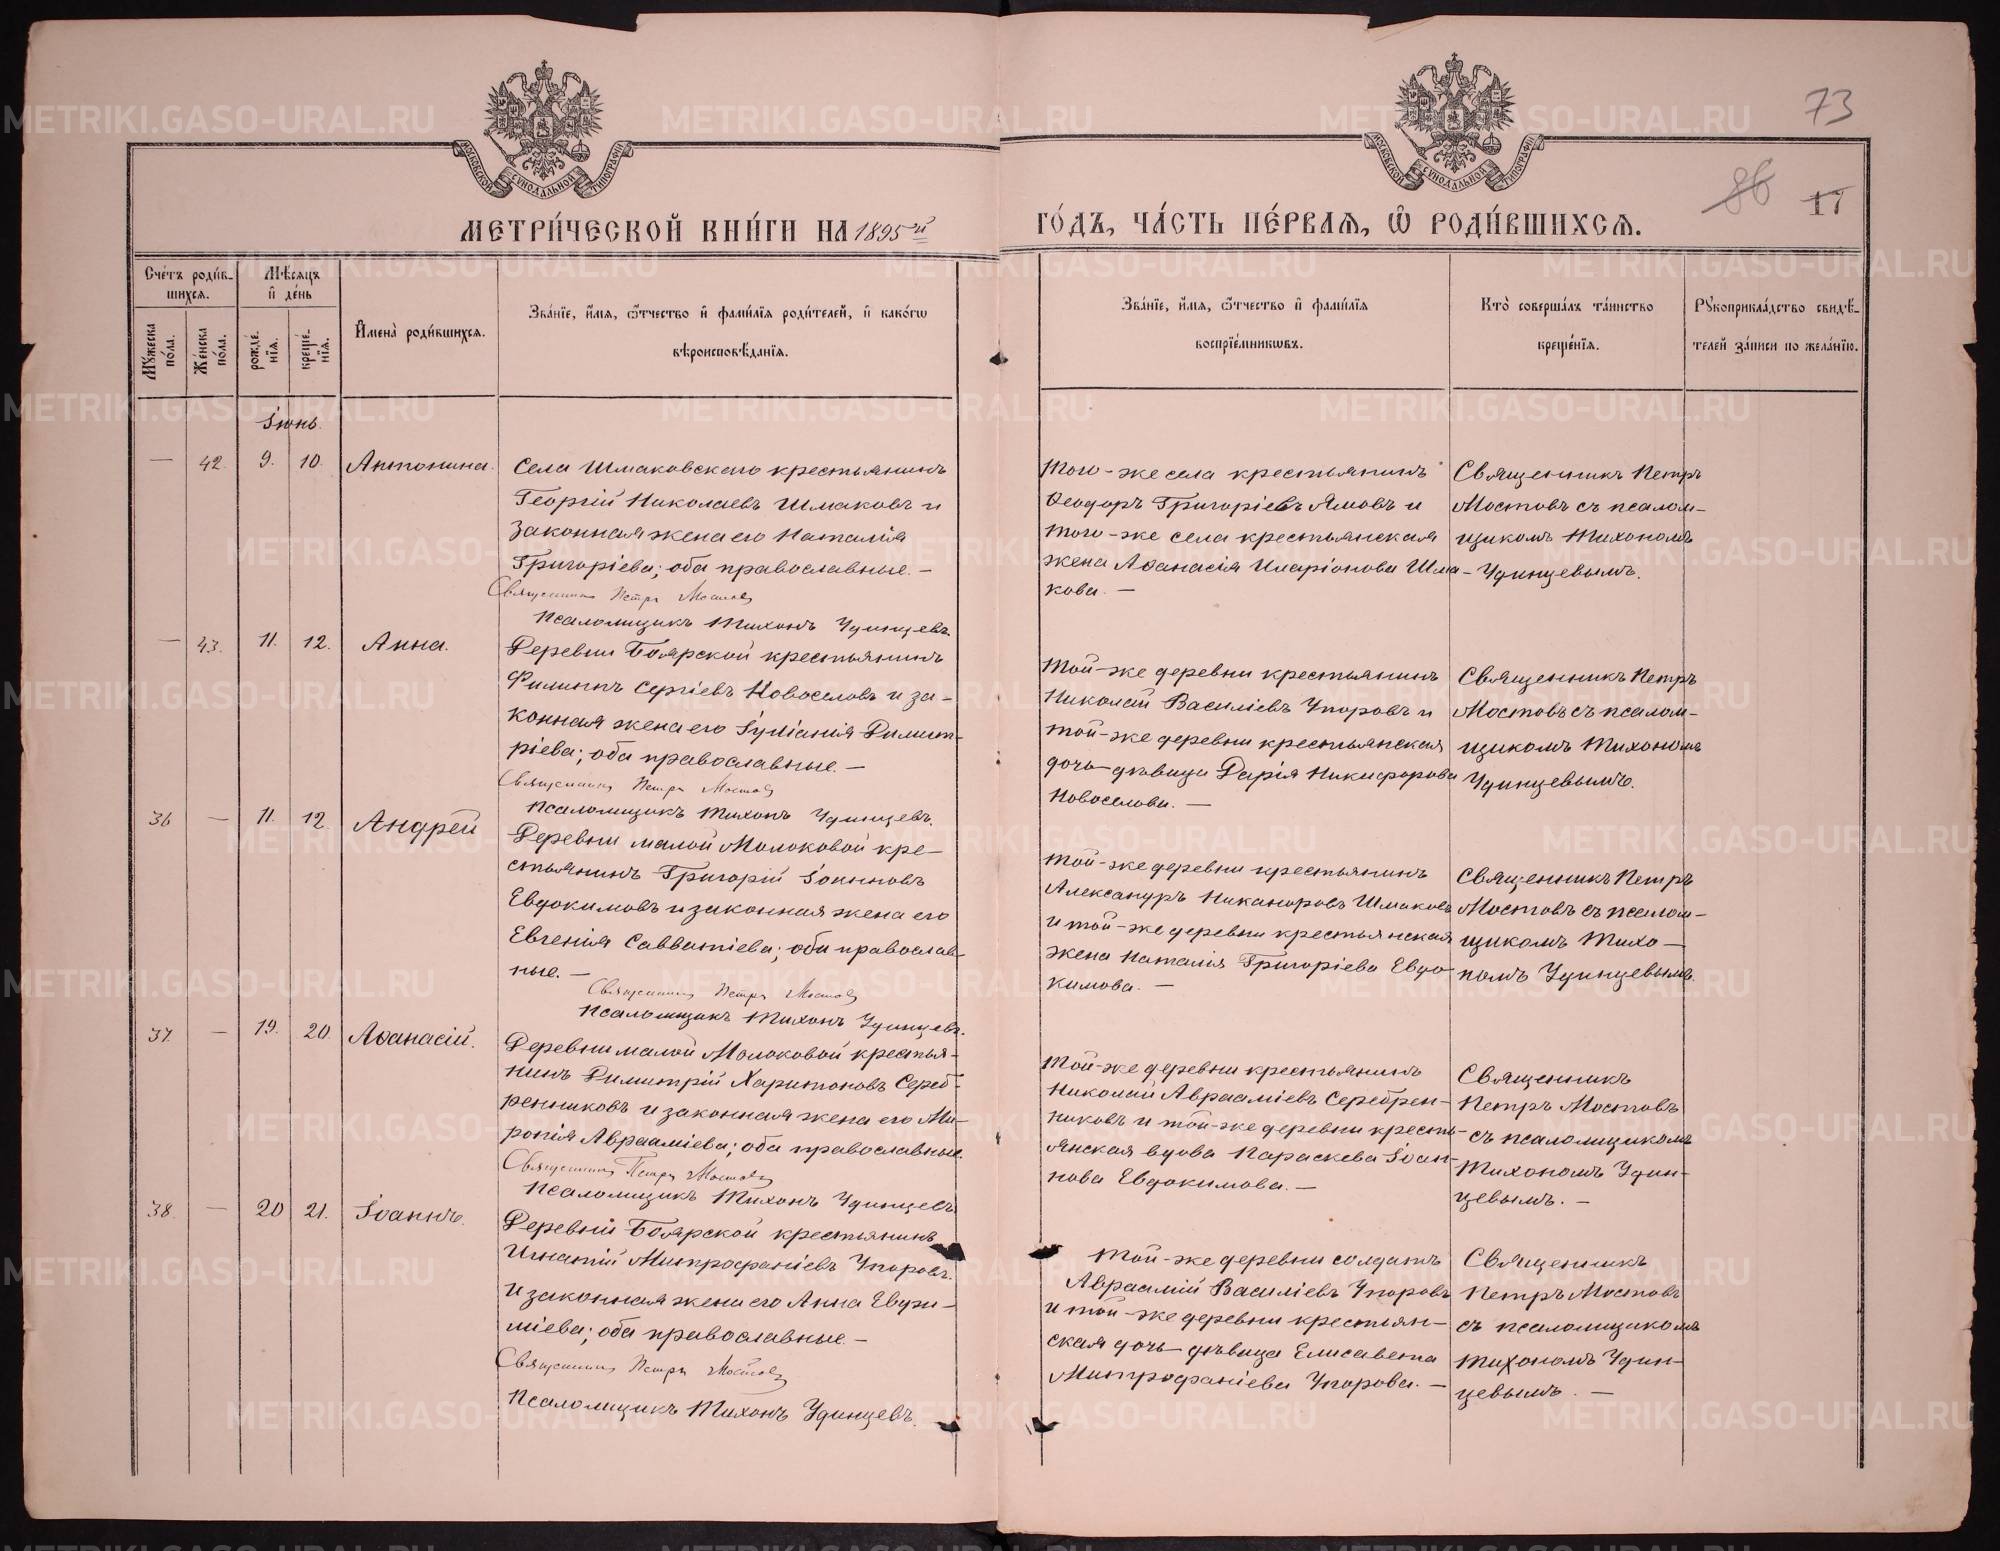 МОСКОВСКОЙ СУНОДАЛЬНОЙ ТИПОГРАФІИ
МОСКОВСКОЙ СУНОДАЛЬНОЙ ТИПОГРАФІИ
73
86 17
МЕТРИ́ЧЕСКОЙ КНИ́ГИ НА 1895й
ГО́ДЪ, ЧА́СТЬ ПЕ́РВАѦ, Ѡ РОДИ́ВШИХСѦ.
Сче́тъ роди́в-
шихсѧ.
Мꙋ́жеска по́ла.
Же́нска по́ла.
Мѣ́сѧцъ
и҆ де́нь
рожде́нїѧ.
креще́нїѧ.
И҆мена̀ роди́вшихсѧ.
Зва́нїе, и҆́мѧ, ѻ҆́тчество и҆ фами́лїѧ роди́телей, и҆ како́гѡ
вѣроисповѣ́данїѧ.
Зва́нїе, и҆́мѧ, ѻ҆́тчество и҆ фами́лїѧ
воспрїе́мникѡвъ.
Кто̀ соверша́лъ та́инство
креще́нїѧ.
Рꙋкоприкла́дство свидѣ́-
телей за́писи по жела́нїю.
Іюнь.
— 42. 9. 10. Антонина.
Села Шмаковскаго крестьянинъ
Георгій Николаевъ Шмаковъ и
законная жена его Наталія
Григоріева; оба православные. —
Священникъ Петръ Мостовъ
Псаломщикъ Тихонъ Удинцевъ.
Того-же села крестьянинъ
Ѳеодоръ Григоріевъ Ямовъ и
того-же села крестьянская
жена Аѳанасія Иларіонова Шма-
кова. —
Священникъ Петръ
Мостовъ съ псалом-
щикомъ Тихономъ
Удинцевымъ.
— 43. 11. 12. Анна.
Деревни Боярской крестьянинъ
Филиппъ Сергіевъ Новоселовъ и за-
конная жена его Іуліанія Димит-
ріева; оба православные. —
Священникъ Петръ Мостовъ
Псаломщикъ Тихонъ Удинцевъ.
Той-же деревни крестьянинъ
Николай Василіевъ Упоровъ и
той-же деревни крестьянская
дочь-дѣвица Дарія Никифорова
Новоселова. —
Священникъ Петръ
Мостовъ съ псалом-
щикомъ Тихономъ
Удинцевымъ.
36 — 11. 12. Андрей
Деревни малой Молоковой кре-
стьянинъ Григорій Іоанновъ
Евдокимовъ и законная жена его
Евгенія Савватіева; оба православ-
ные. —
Священникъ Петръ Мостовъ
Псаломщикъ Тихонъ Удинцевъ.
Той-же деревни крестьянинъ
Александръ Никаноровъ Шмаковъ
и той-же деревни крестьянская
жена Наталія Григоріева Евдо-
кимова. —
Священникъ Петръ
Мостовъ съ псалом-
щикомъ Тихо-
номъ Удинцевымъ.
37. — 19. 20. Аѳанасій.
Деревни малой Молоковой крестья-
нинъ Димитрій Харитоновъ Сереб-
ренниковъ и законная жена его Ми-
ропія Авраамiева; оба православные.
Священникъ Петръ Мостовъ
Псаломщикъ Тихонъ Удинцевъ
Той-же деревни крестьянинъ
Николай Авраамiевъ Серебрен-
никовъ и той-же деревни кресть-
янская вдова Параскева Іоан-
нова Евдокимова. —
Священникъ
Петръ Мостовъ
съ псаломщикомъ
Тихономъ Удин-
цевымъ. —
38. — 20 21. Іоаннъ.
Деревни Боярской крестьянинъ
Игнатій Митрофаніевъ Упоровъ.
и законная жена его Анна Евѳи-
міева; оба православные. —
Священникъ Петръ Мостовъ
Псаломщикъ Тихонъ Удинцевъ.
Той-же деревни солдатъ
Авраамій Василіевъ Упоровъ
и той-же деревни крестьян-
ская дочь-дѣвица Елисавета
Митрофаніева Упорова. —
Священникъ
Петръ Мостовъ
съ псаломщикомъ
Тихономъ Удин-
цевымъ. —
METRIKI.GASO-URAL.RU